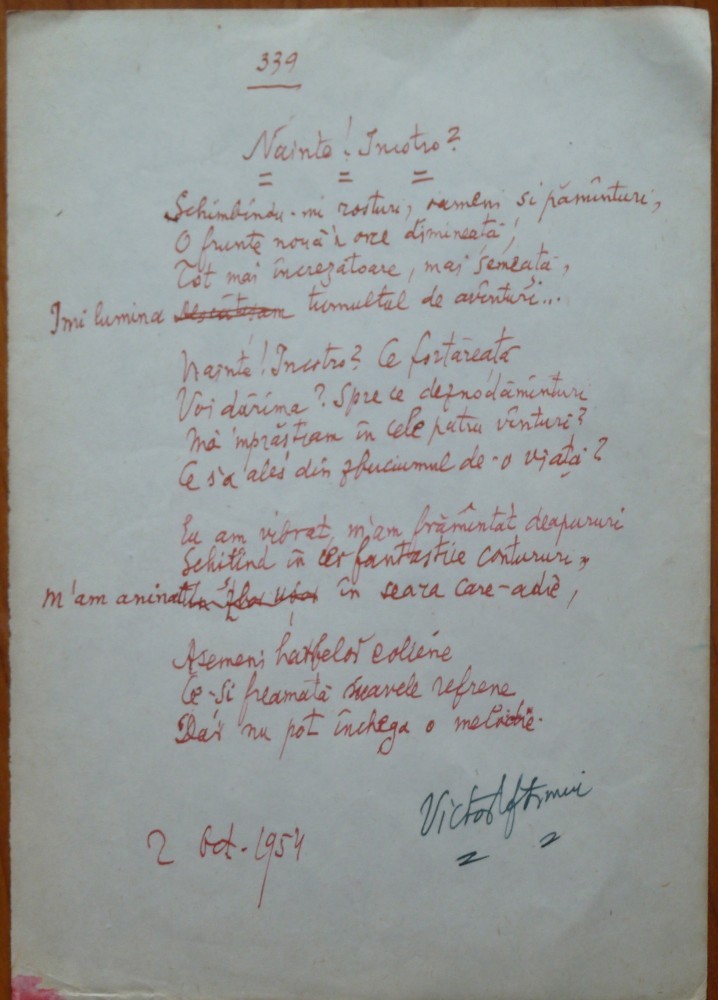 339
Nainte! Incotro?
Schimbîndu-mi rosturi, oameni si pămînturi,
O frunte nouă'n orce dimineată,
Tot mai încrezătoare, mai semeată,
Imi lumina tumultul de avînturi...
Nainte! Incotro? Ce fortăreată
Voi dărîma? Spre ce deznodăminturi
Mă 'mprăstiam în cele patru vînturi?
Ce s'a ales din zbuciumul de-o viată?
Eu am vibrat, m'am frămîntat deapururi
Schitînd în cer fantastice contururi,
M'am aninat în seara care-adie,
Asemeni harfelor eoliene
Ce-si freamătă suavele refrene
Dar nu pot închega o melodie.
Victor Eftimiu
2 Oct. 1954